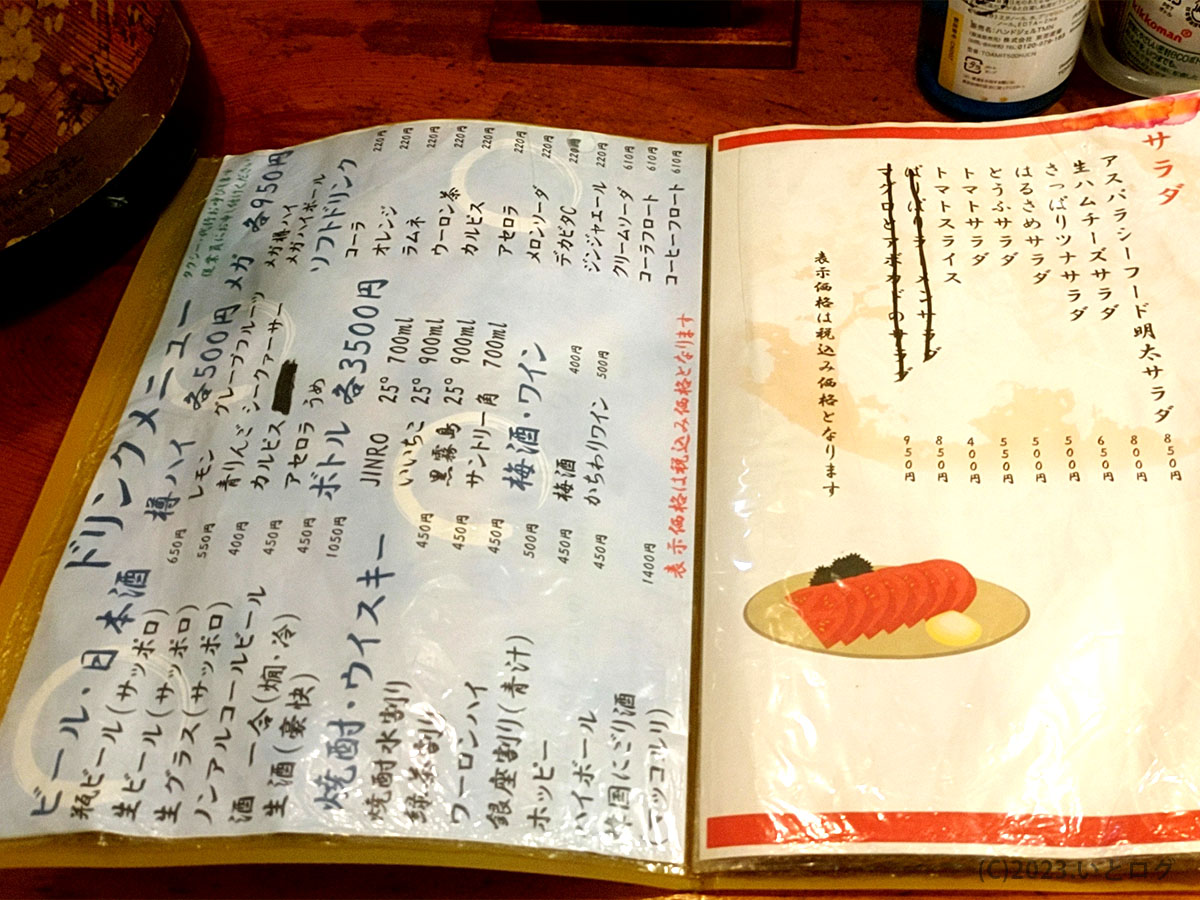 ドリンクメニュー
ビール・日本酒
瓶ビール(サッポロ) 650円
生ビール(サッポロ) 550円
生グラス(サッポロ) 400円
ノンアルコールビール 450円
酒 一合(燗・冷) 450円
生 酒(豪快) 1050円
焼酎・ウイスキー
焼酎水割り 450円
緑茶割り 450円
ウーロンハイ 450円
銀座割り(青汁) 500円
ホッピー 450円
ハイボール 450円
韓国にごり酒
(マッコルリ) 1400円
樽ハイ 各500円
レモン グレープフルーツ
青りんご シークァーサー
カルピス
アセロラ うめ
ボトル 各3500円
JINRO 25° 700ml
いいちこ 25° 900ml
黒霧島 25° 900ml
サントリー角 700ml
梅酒・ワイン
梅酒 400円
かちわりワイン 500円
メガ 各950円
メガ樽ハイ
メガハイボール
ソフトドリンク
コーラ 220円
オレンジ 220円
ラムネ 220円
ウーロン茶 220円
カルピス 220円
アセロラ 220円
メロンソーダ 220円
デカビタC 220円
ジンジャエール 220円
クリームソーダ 610円
コーラフロート 610円
コーヒーフロート 610円
表示価格は税込み価格となります
サラダ
アスパラシーフード明太サラダ 850円
生ハムチーズサラダ 800円
さっぱりツナサラダ 650円
はるさめサラダ 500円
とうふサラダ 500円
トマトサラダ 550円
トマトスライス 400円
850円
950円
表示価格は税込み価格となります
kikkoman
(C)2023 いとログ